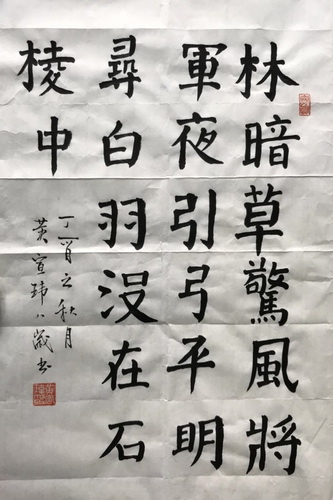 林暗草驚風將
軍夜引弓平明
尋白羽沒在石
棱中
丁酉之秋月
黄宣玮八歲书